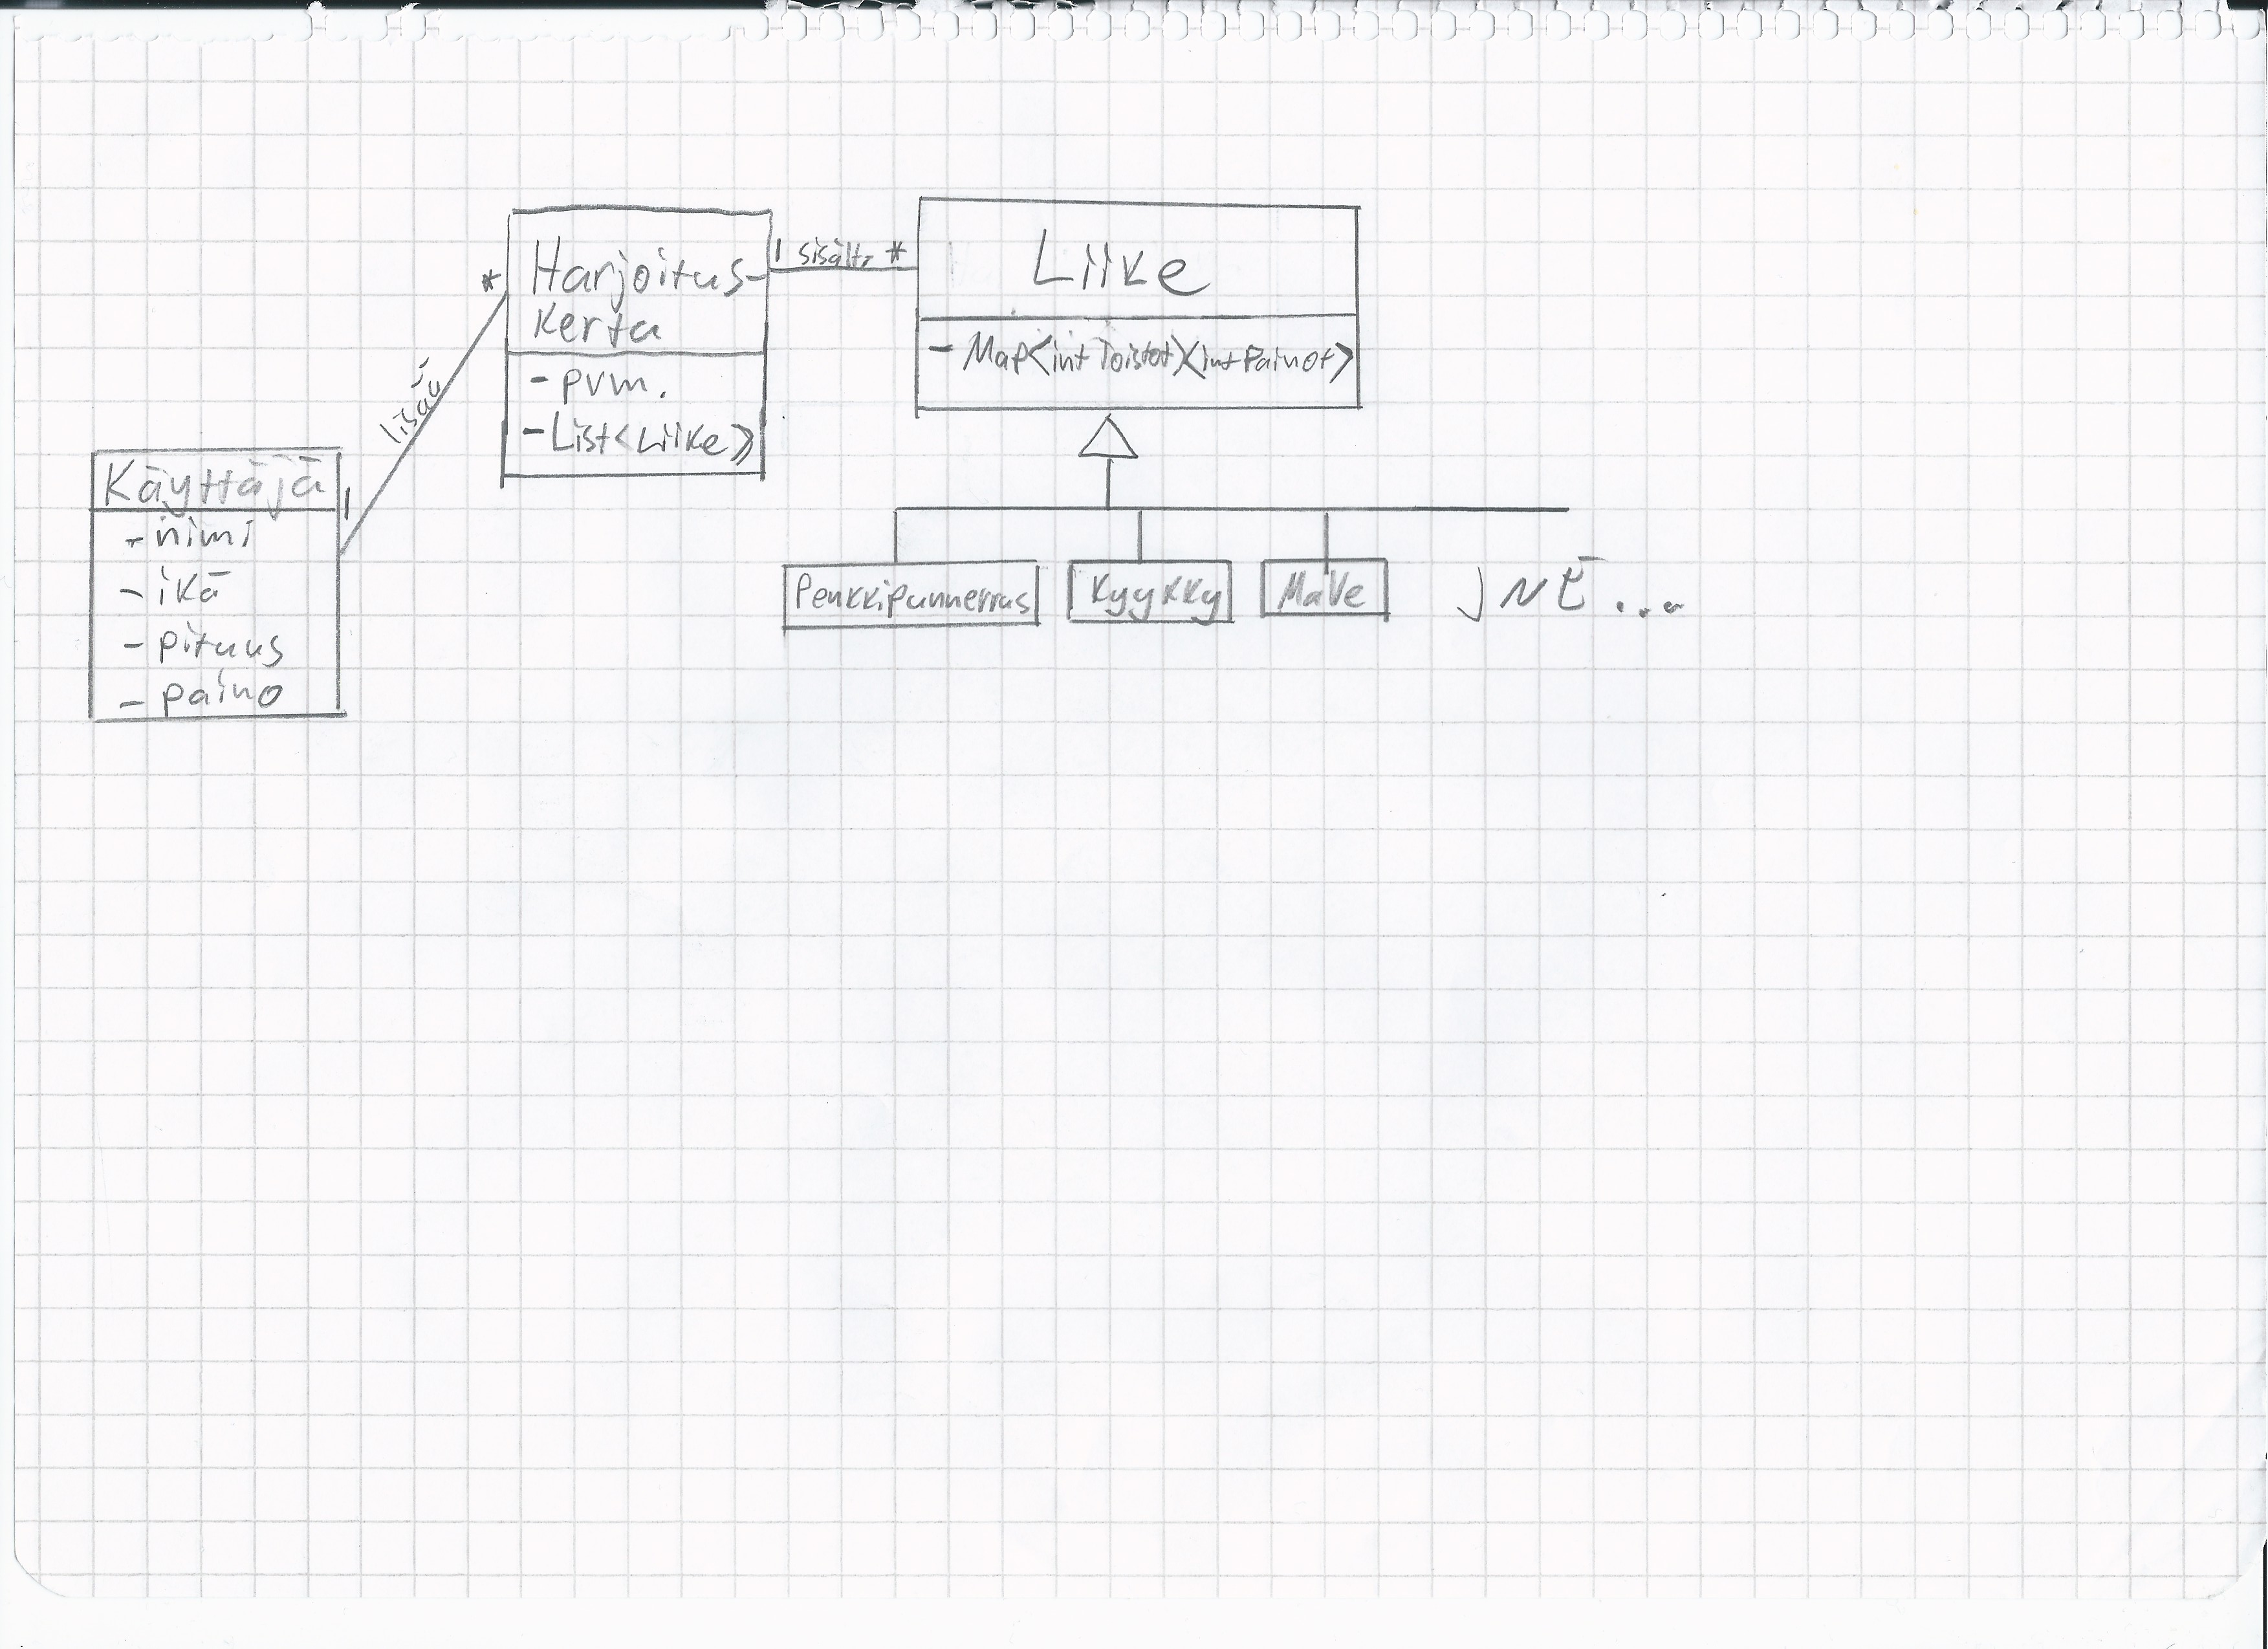 Käyttäjä
- nimi
- ikä
- pituus
- paino
1
lisää
*
Harjoitus-
kerta
- pvm.
- List<Liike>
1 sisält. *
Liike
- Map<int Toistot)(int Painot>
Penkkipunnerrus
Kyykky
MaVe
JNE...